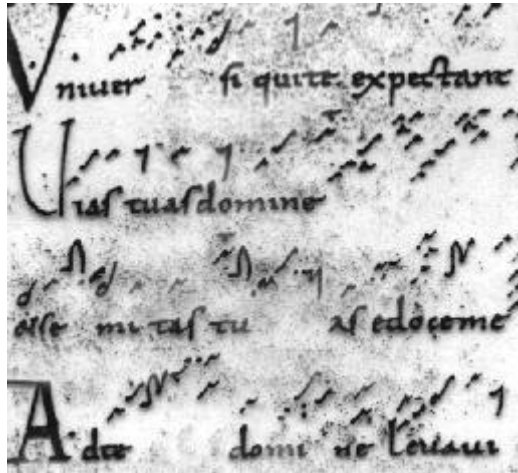 Vniuer si quite expectant
Uias tuas domine
mi tas tu as edoceme
Adte domi ne leuaui